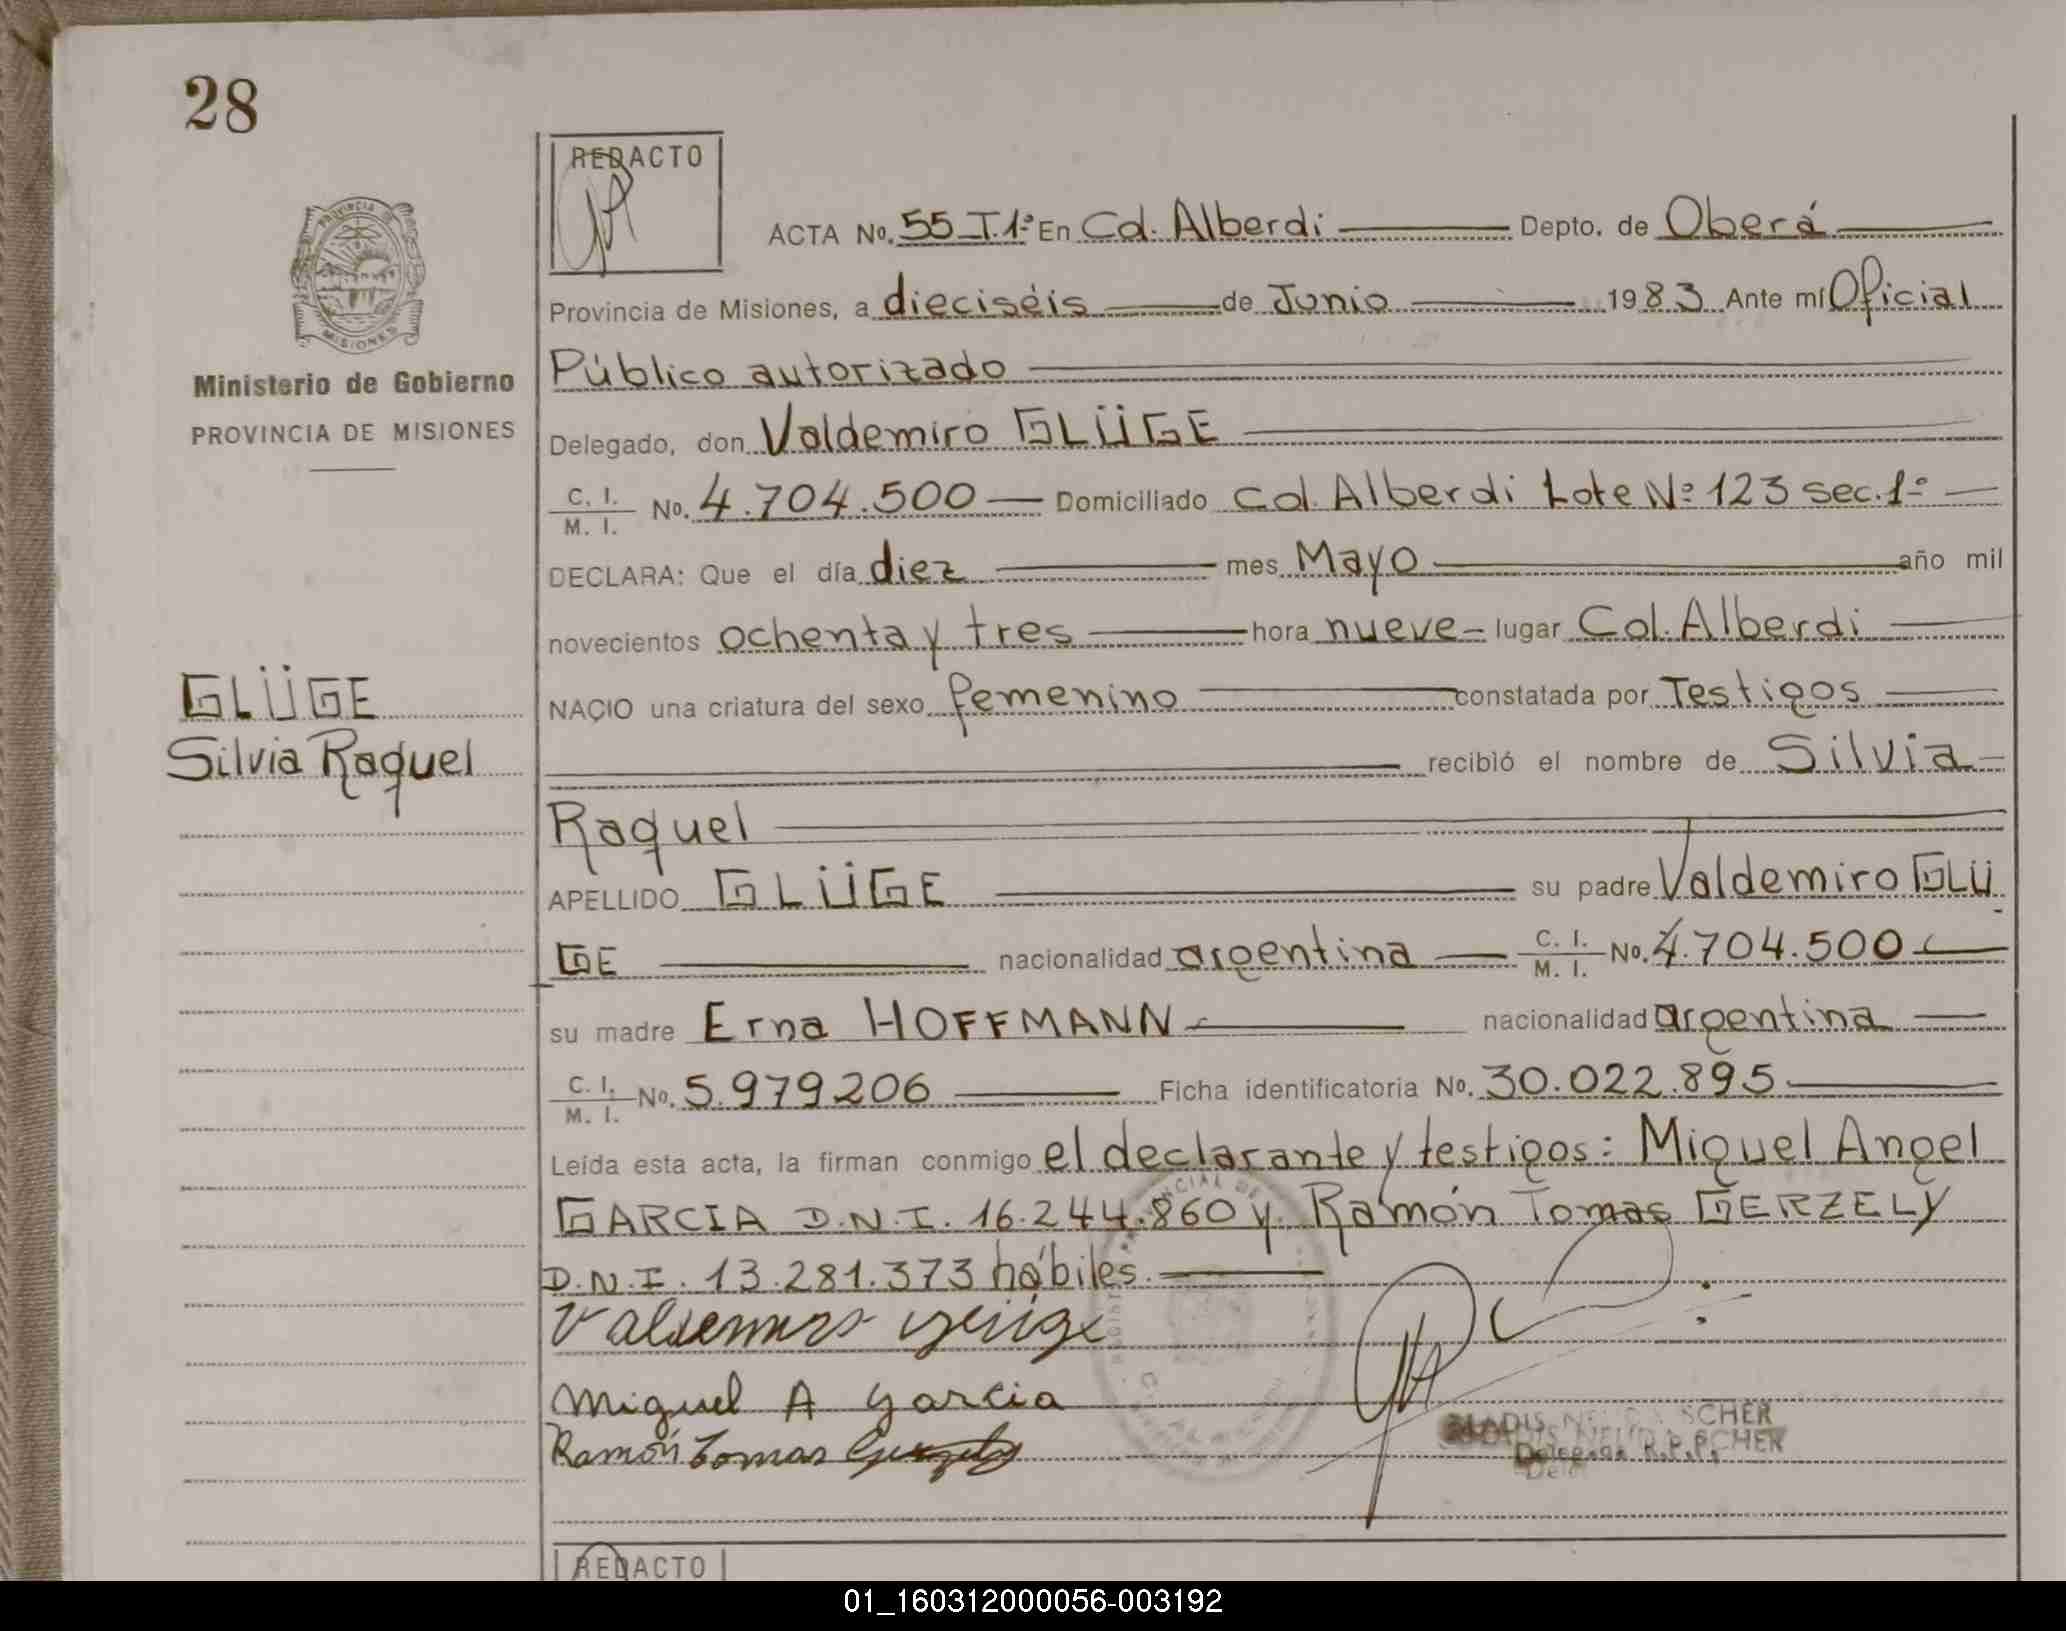 28
REDACTO
PROVINCIA DE
MISIONES
ACTA No. 55 T.1º En Col. Alberdi Depto. de Oberá
Provincia de Misiones, a dieciséis de Junio 1983 Ante mí Oficial
Público autorizado
Ministerio de Gobierno
PROVINCIA DE MISIONES
Delegado, don Valdemiro GLÜGE
C. I. / M. I. No. 4.704.500 Domiciliado Col. Alberdi Lote Nº 123 sec. 1º
DECLARA: Que el día diez mes Mayo año mil
novecientos ochenta y tres hora nueve lugar Col. Alberdi
GLÜGE
Silvia Raquel
NACIO una criatura del sexo femenino constatada por Testigos
recibió el nombre de Silvia
Raquel
APELLIDO GLÜGE su padre Valdemiro GLÜ
GE nacionalidad argentina C. I. / M. I. No. 4.704.500
su madre Erna HOFFMANN nacionalidad argentina
C. I. / M. I. No. 5.979206 Ficha identificatoria No. 30.022.895
Leída esta acta, la firman conmigo el declarante y testigos: Miguel Angel
GARCIA D.N.I. 16.244.860 y Ramón Tomas GERZELY
D.N.I. 13.281.373 hábiles.
Miguel A Garcia
Ramón Tomas Gerzely
SCHER
Delegada R.P.P.
REDACTO
01_160312000056-003192